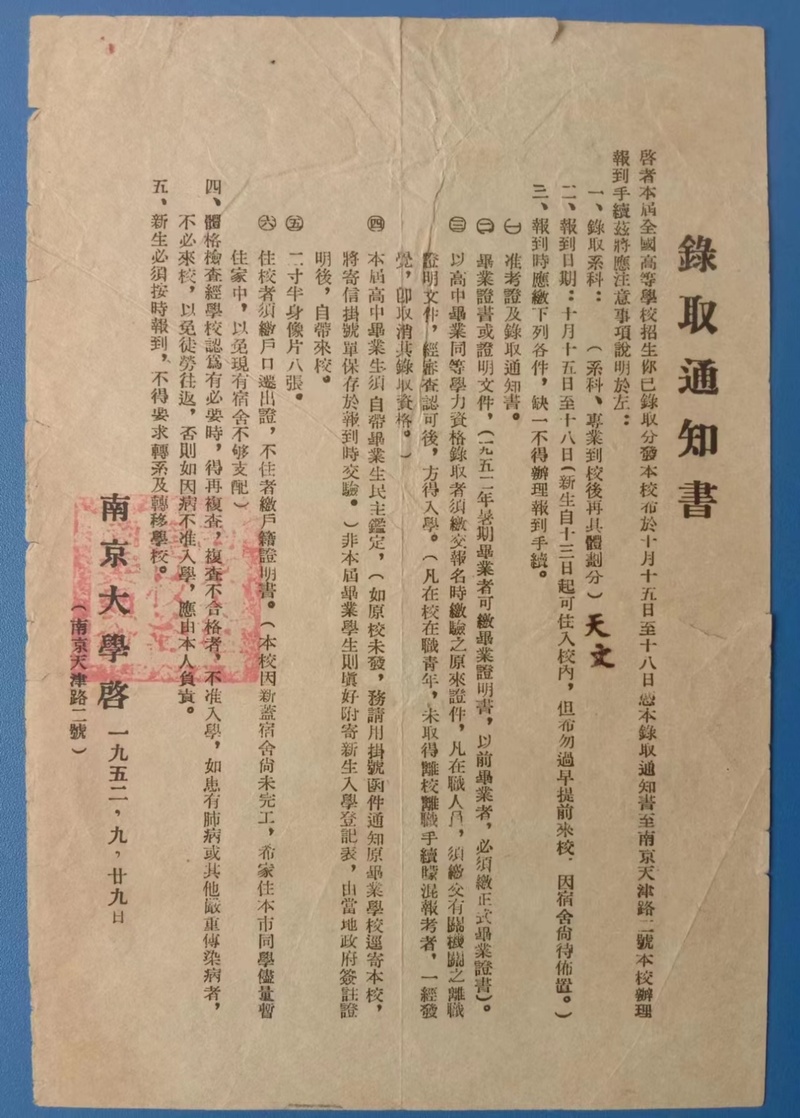 錄取通知書
啓者本屆全國高等學校招生你已錄取分發本校希於十月十五日至十八日憑本錄取通知書至南京天津路二號本校辦理
報到手續茲將應注意事項說明於左：
一、錄取系科：（系科、專業到校後再具體劃分）天文
二、報到日期：十月十五日至十八日（新生自十三日起可住入校內，但希勿過早提前來校，因宿舍尚待佈置。）
三、報到時應繳下列各件，缺一不得辦理報到手續。
㊀准考證及錄取通知書。
㊁畢業證書或證明文件，（一九五二年暑期畢業者可繳畢業證明書，以前畢業者，必須繳正式畢業證書）。
㊂以高中畢業同等學力資格錄取者須繳交報名時繳驗之原來證件，凡在職人員，須繳交有關機關之離職
證明文件，經審查認可後，方得入學。（凡在校在職青年，未取得離校離職手續矇混報考者，一經發
覺，卽取消其錄取資格。）
㊃本屆高中畢業生須自帶畢業生民主鑑定，（如原校未發，務請用掛號函件通知原畢業學校逕寄本校，
將寄信掛號單保存於報到時交驗。）非本屆畢業學生則塡好附寄新生入學登記表，由當地政府簽註證
明後，自帶來校。
㊄二寸半身像片八張。
㊅住校者須繳戶口遷出證，不住者繳戶籍證明書。（本校因新蓋宿舍尚未完工，希家住本市同學儘量暫
住家中，以免現有宿舍不够支配）
四、體格檢查經學校認爲有必要時，得再複查，複查不合格者，不准入學，如患有肺病或其他嚴重傳染病者，
不必來校，以免徒勞往返，否則如因病不准入學，應由本人負責。
五、新生必須按時報到，不得要求轉系及轉移學校。
南京大學啓 一九五二，九，廿九日
（南京天津路二號）